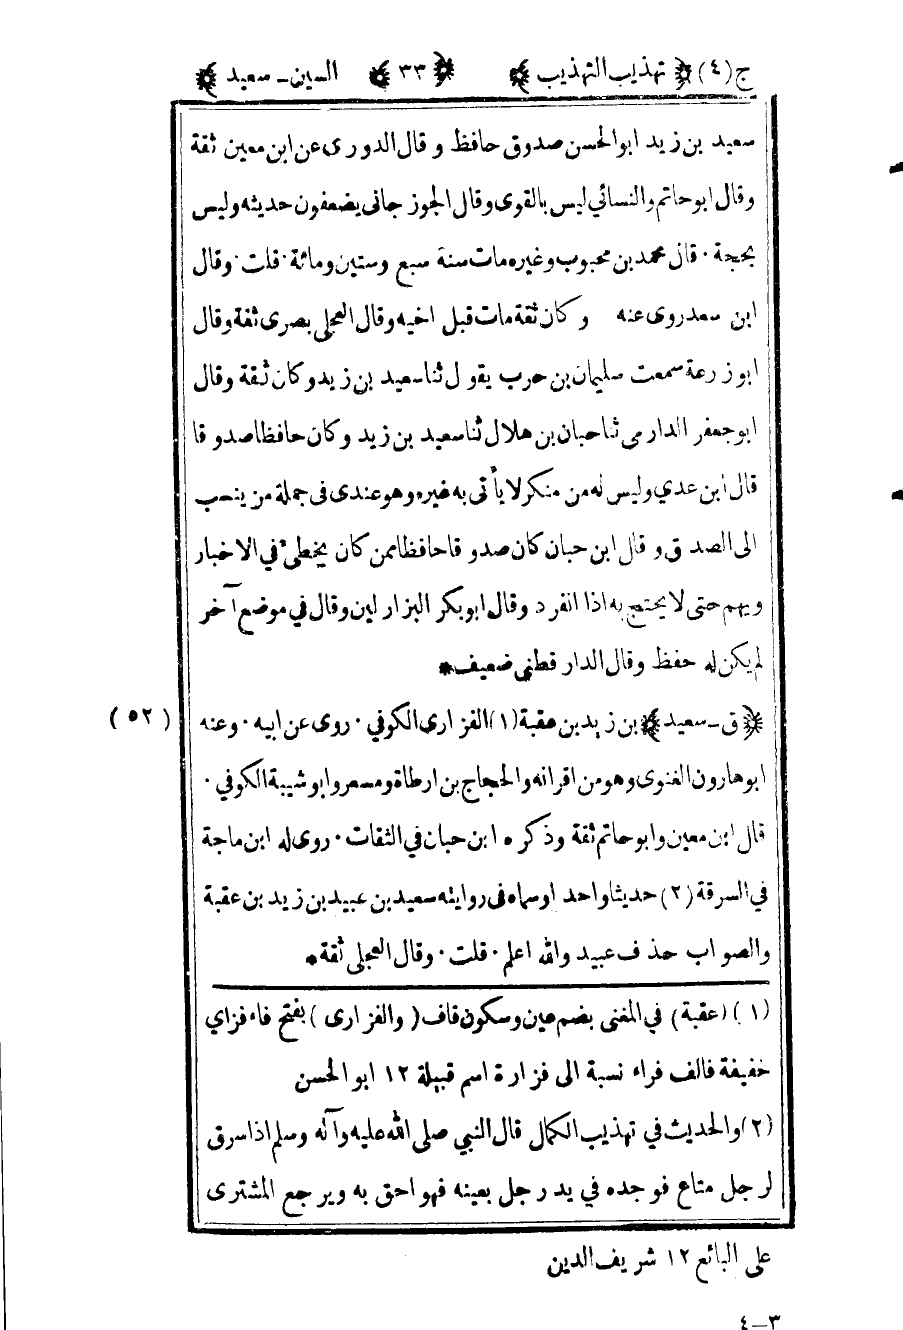 ج(٤) ﴿تهذيب التهذيب﴾ ﴿٣٣﴾ ﴿السين ـ سعيد﴾
سعيد بن زيد ابوالحسن صدوق حافظ وقال الدورى عن ابن معين ثقة
وقال ابوحاتم والنسائي ليس بالقوى وقال الجوزجانى يضعفون حديثه وليس
بحجة · قال محمد بن محبوب وغيره مات سنة سبع وستين ومائة · قلت · وقال
ابن سعد روى عنه وكان ثقة مات قبل اخيه وقال العجلى بصرى ثقة وقال
ابوزرعة سمعت سليمان بن حرب يقول ثنا سعيد بن زيد وكان ثقة وقال
ابوجعفر الدارمى ثنا حبان بن هلال ثنا سعيد بن زيد وكان حافظا صدوقا
قال ابن عدي وليس له من منكر لا يأتى به غيره وهو عندى فى جملة من ينسب
الى الصدق وقال ابن حبان كان صدوقا حافظا ممن كان يخطئ في الاخبار
ويهم حتى لا يحتج به اذا انفرد وقال ابوبكر البزار لين وقال في موضع آخر
لم يكن له حفظ وقال الدارقطنى ضعيف*
﴿ق ـ سعيد﴾ بن زيد بن عقبة (١) الفزارى الكوفي · روى عن ابيه · وعنه (٥٢)
ابوهارون الغنوى وهو من اقرانه والحجاج بن ارطاة ومسعر وابوشيبة الكوفي ·
قال ابن معين وابوحاتم ثقة وذكره ابن حبان في الثقات · روى له ابن ماجة
في السرقة (٢) حديثا واحدا وسماه فى روايته سعيد بن عبيد بن زيد بن عقبة
والصواب حذف عبيد والله اعلم · قلت · وقال العجلى ثقة*
(١) (عقبة) في المغنى بضم عين وسكون قاف (والفزارى) بفتح فاء فزاي
خفيفة فالف فراء نسبة الى فزارة اسم قبيلة ١٢ ابوالحسن
(٢) والحديث في تهذيب الكمال قال النبي صلى الله عليه وآله وسلم اذا سرق
لرجل متاع فوجده في يد رجل بعينه فهو احق به ويرجع المشترى
على البائع ١٢ شريف الدين
٣—٤